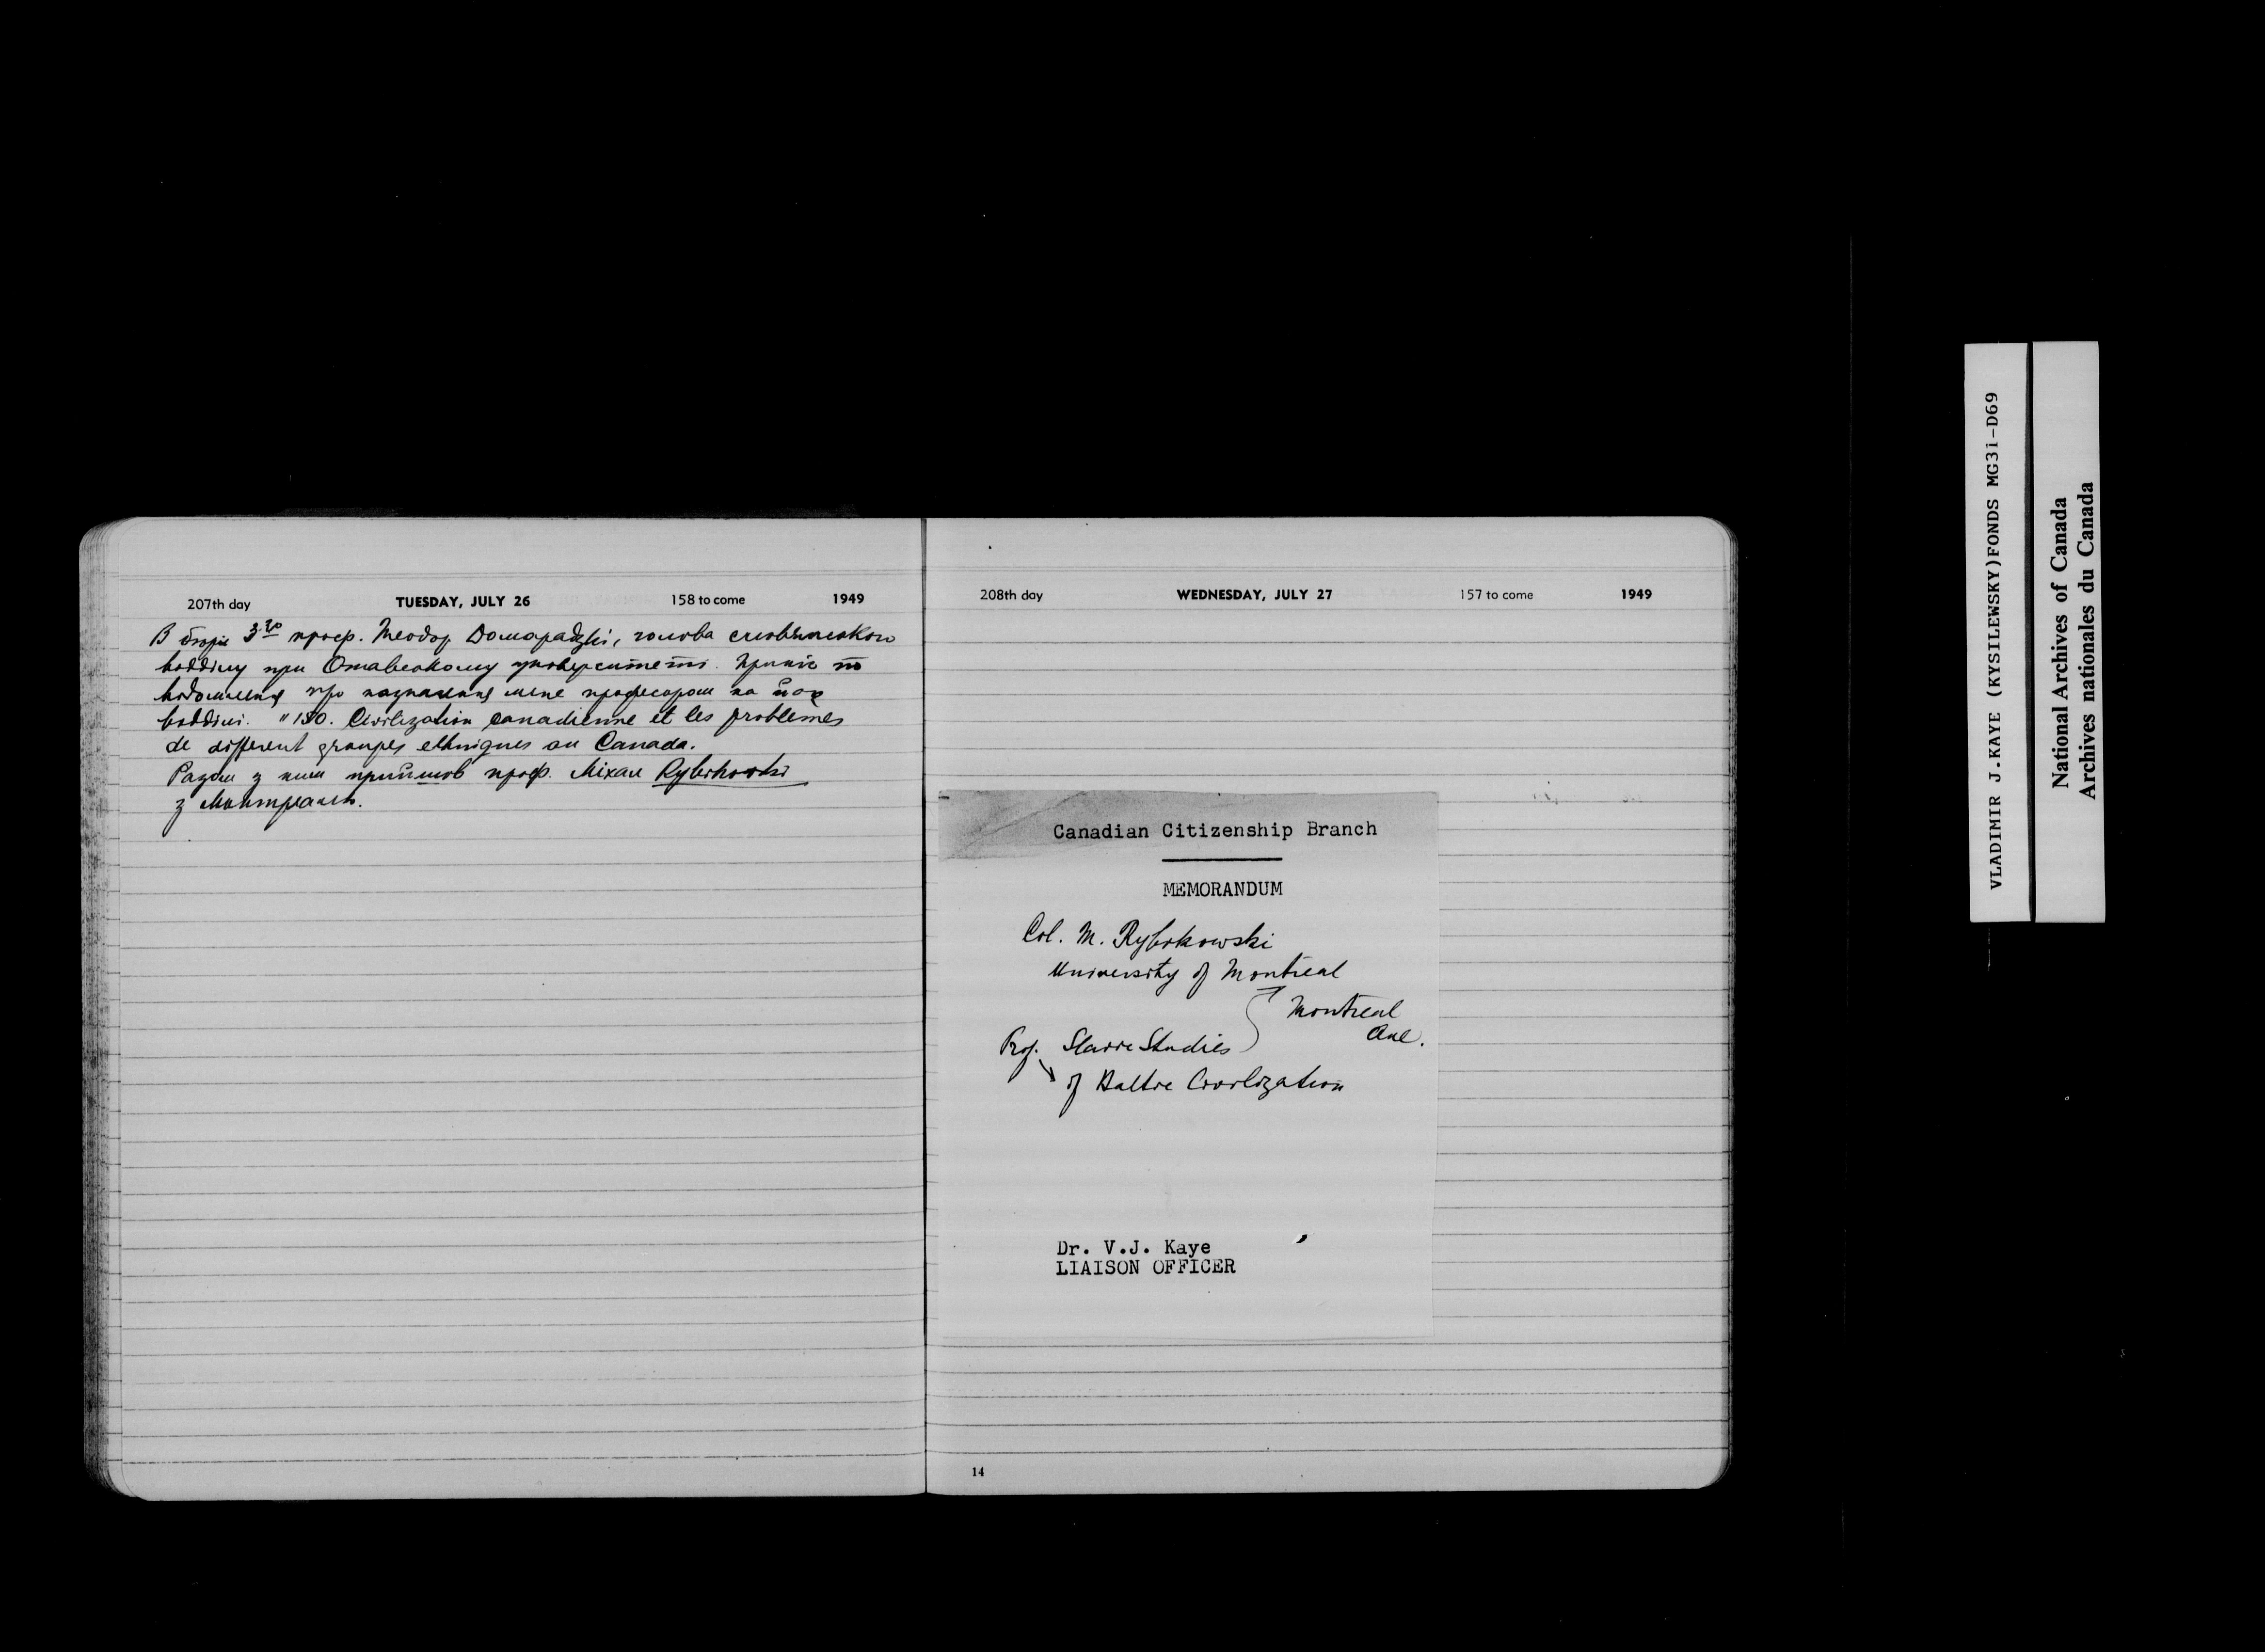 207th day TUESDAY, JULY 26 158 to come 1949
В бюрі 3.20 проф. Теодор Домарадзкі, голова словянского
відділу при Отавському університеті. Приніс
повідомлення про назначення мене професором на
відділі. "150. Civilization canadienne et les problèmes
de different groupes ethniques au Canada.
Разом з ним прийшов проф. Міхал Rybikowski
з Монтреалю.
208th day WEDNESDAY, JULY 27 157 to come 1949
Canadian Citizenship Branch
MEMORANDUM
Col. M. Rybikowski
University of Montreal
Montreal
Ave.
Prof. Slavic Studies
of Baltic Civilization
Dr. V.J. Kaye
LIAISON OFFICER
14
VLADIMIR J.KAYE (KYSILEWSKY)FONDS MG31-D69
National Archives of Canada
Archives nationales du Canada